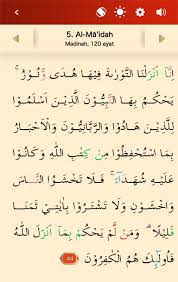 5. Al-Mâ'idah
Madinah, 120 ayat
إِنَّآ أَنْزَلْنَا التَّوْرٰىةَ فِيْهَا هُدًى وَّنُوْرٌۚ
يَحْكُمُ بِهَا النَّبِيُّوْنَ الَّذِيْنَ اَسْلَمُوْا
لِلَّذِيْنَ هَادُوْا وَالرَّبَّانِيُّوْنَ وَالْاَحْبَارُ
بِمَا اسْتُحْفِظُوْا مِنْ كِتٰبِ اللّٰهِ وَكَانُوْا
عَلَيْهِ شُهَدَآءَۚ فَلَا تَخْشَوُا النَّاسَ
وَاخْشَوْنِ وَلَا تَشْتَرُوْا بِاٰيٰتِيْ ثَمَنًا
قَلِيْلًاۗ وَمَنْ لَّمْ يَحْكُمْ بِمَآ اَنْزَلَ اللّٰهُ
فَاُولٰۤىِٕكَ هُمُ الْكٰفِرُوْنَ 44